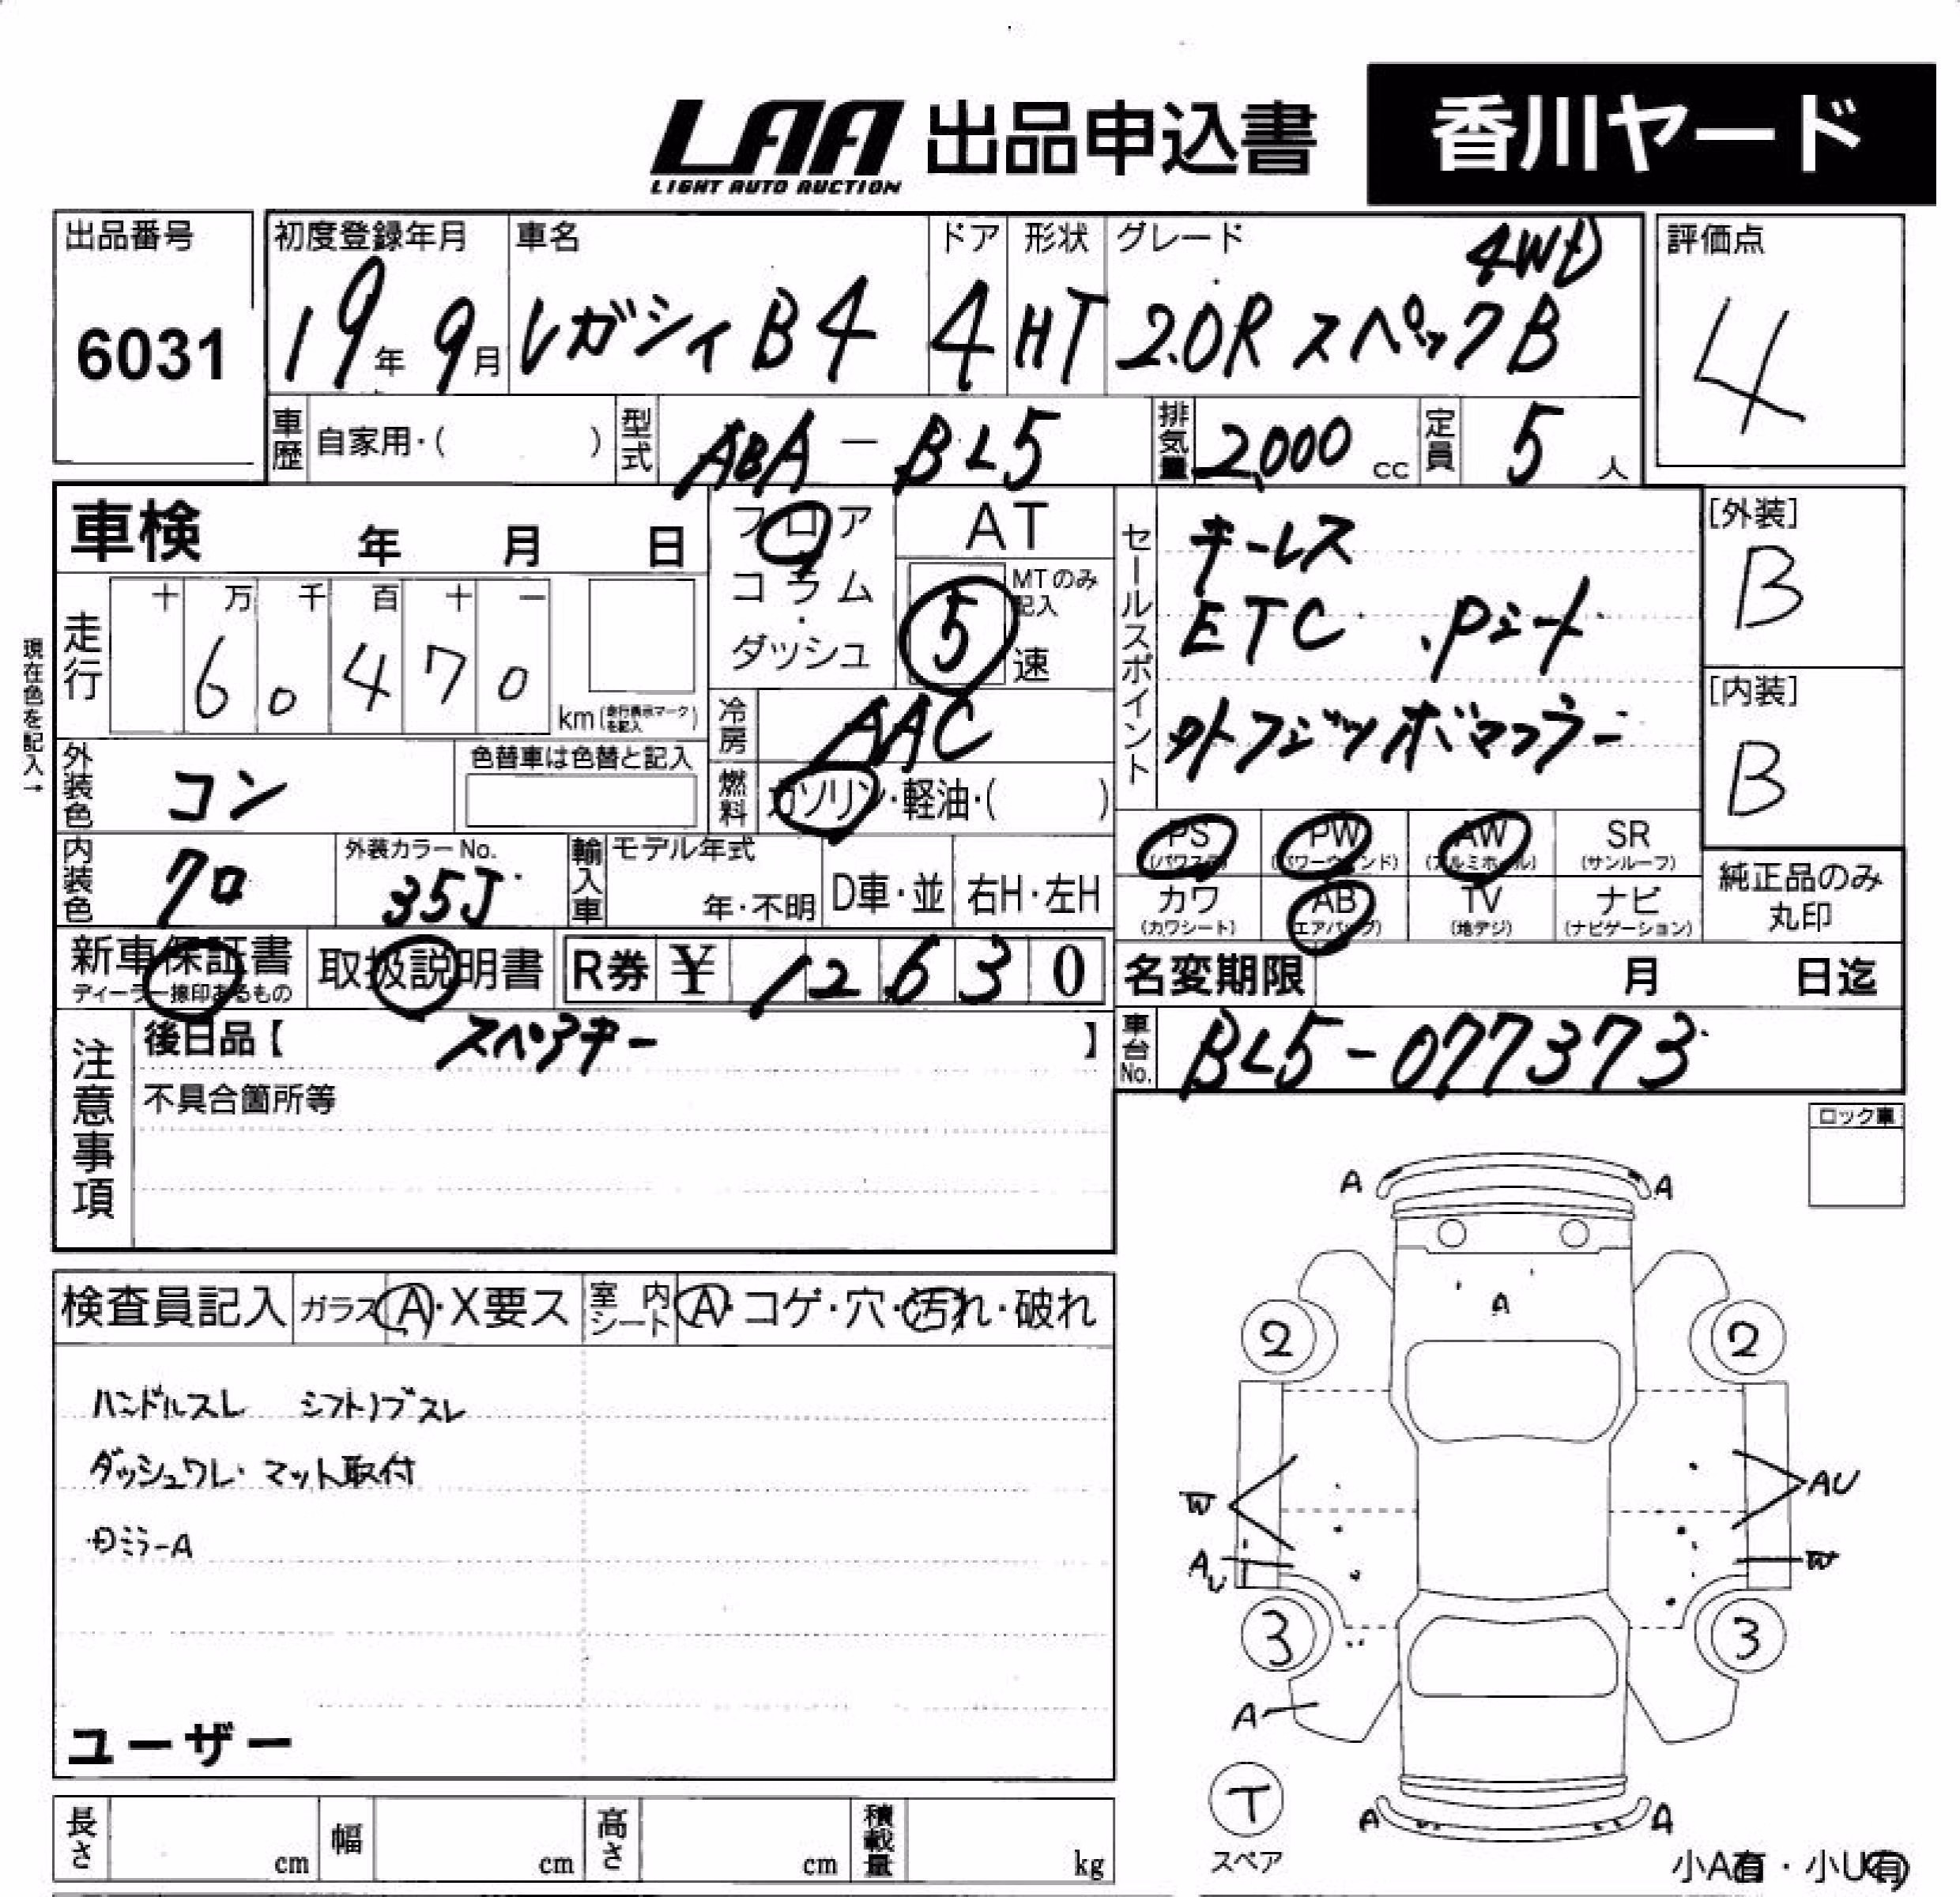 LAA 出品申込書 香川ヤード
LIGHT AUTO AUCTION
出品番号 初度登録年月 車名 ドア 形状 グレード 4WD 評価点
6031 19年 9月 レガシィ B4 4 HT 2.0R スペックB 4
車歴 自家用・( ) 型式 ABA-BL5 排気量 2,000 cc 定員 5 人
車検 年 月 日
フロア
コラム
ダッシュ
AT
MTのみ記入
5 速
走行 十 万 千 百 十 一
6 0 4 7 0 km (走行表示マークを記入)
現在色を記入→
冷房 AAC
燃料 ガソリン・軽油・( )
外装色 コン 色替車は色替と記入
内装色 クロ 外装カラーNo. 35J 輸入車 モデル年式 年・不明 D車・並 右H・左H
セールスポイント
キーレス
ETC .Pシート
外フジツボマフラー
[外装]
B
[内装]
B
PS PW AW SR
(パワステ) (パワーウインド) (アルミホイル) (サンルーフ)
カワ AB TV ナビ
(カワシート) (エアバッグ) (地デジ) (ナビゲーション)
純正品のみ
丸印
新車保証書 取扱説明書 R券 ¥ 12630
ディーラー捺印あるもの
名変期限 月 日迄
車台No. BL5-077373
注意事項
後日品【 スペアキー 】
不具合箇所等
ロック車
検査員記入 ガラス A・X要ス 室内シート A・コゲ・穴・汚れ・破れ
ハンドルスレ シフトノブスレ
ダッシュワレ・マット取付
ミラーA
ユーザー
A A
A
2 2
W AU
AU W
3 3
A
T
スペア
A A
小A有・小U有
長さ cm 幅 cm 高さ cm 積載量 kg